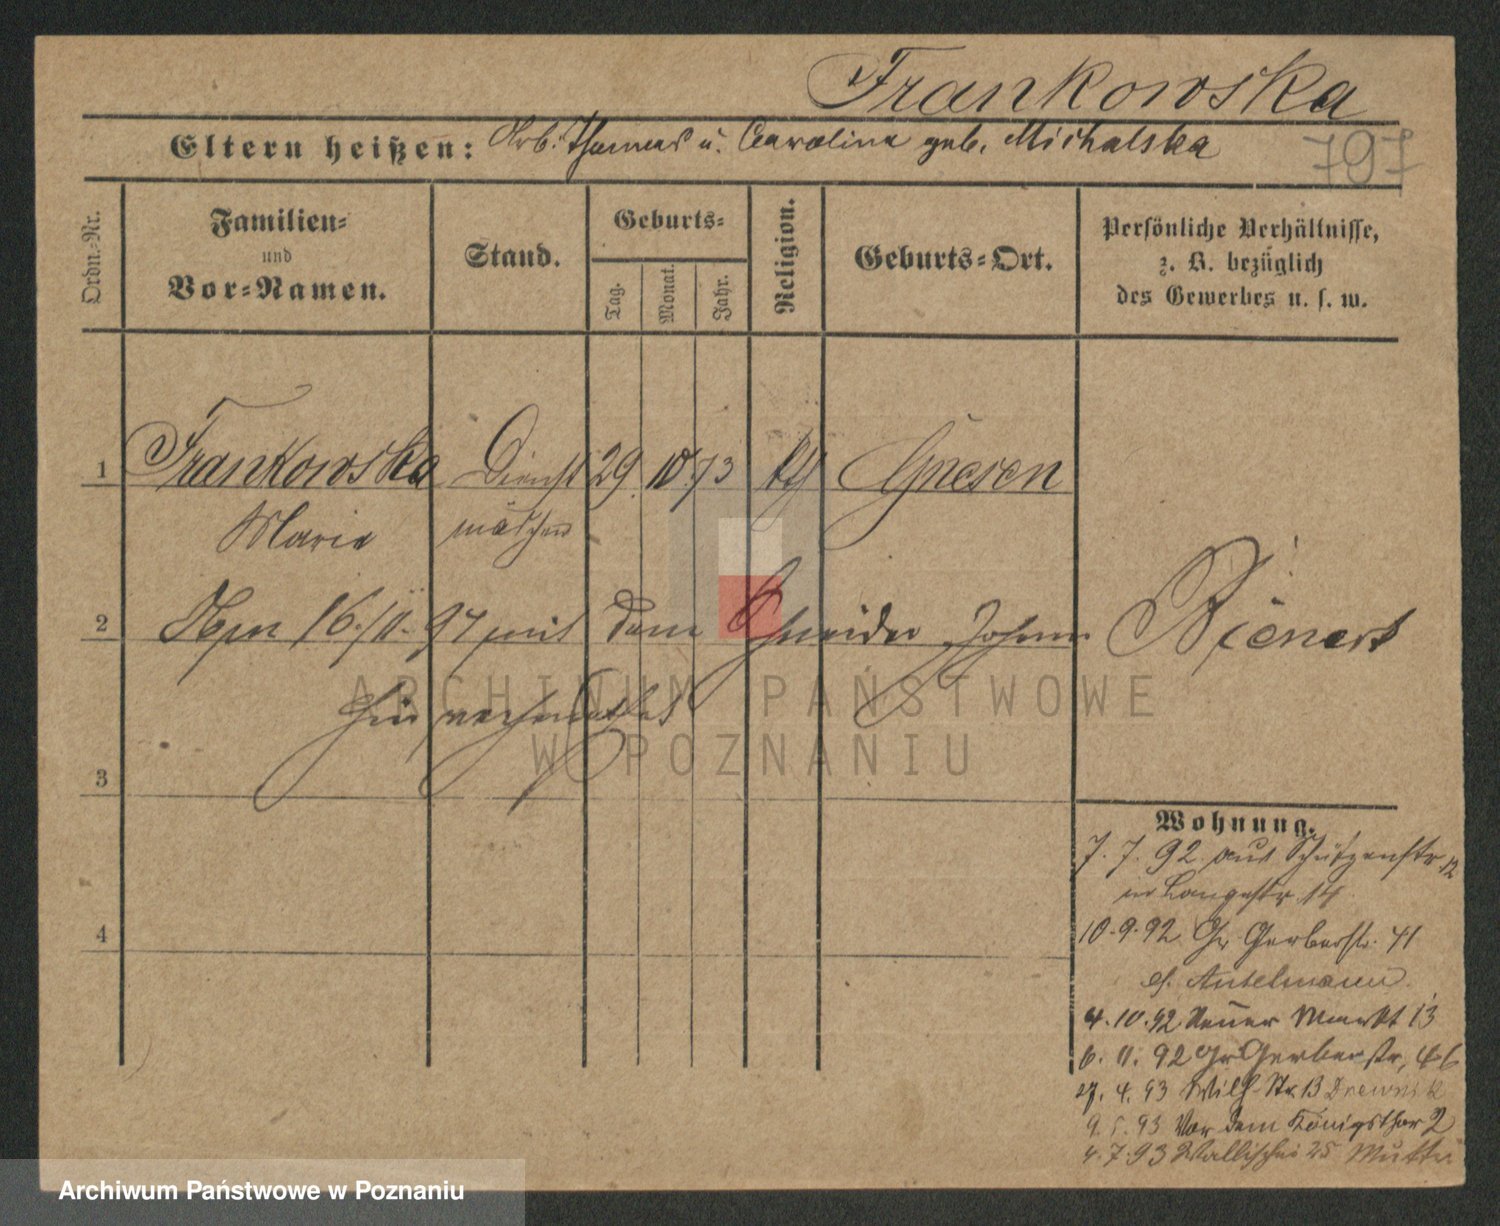 Frankowska
Eltern heißen: Arb. Thomas u. Carolina geb. Michalska
797
Ordn.-Nr.
Familien-
und
Vor-Namen.
Stand.
Geburts-
Tag.
Monat.
Jahr.
Religion.
Geburts-Ort.
Persönliche Verhältnisse,
z. B. bezüglich
des Gewerbes u. s. w.
1 Frankowska Dienst 29 10 73 Gnesen
Marie mädchen
2 16/11. 97 mit dem Schneider Johann Bienert
hier verheirathet
3
4
Wohnung.
7. 7. 92 aus Schützenstr 12
in Langestr 14
10.9.92 Gr Gerberstr. 41
Antelmann
4.10.92 Neuer Markt 13
6. 11. 92 Gr Gerberstr, 46
27. 4. 93 Wilh. Str. 13 Drewnik
9. 5. 93 Vor dem Königsthor 2
4.7.93 Wallischei 25 Mutter
ARCHIWUM PAŃSTWOWE
W POZNANIU
Archiwum Państwowe w Poznaniu